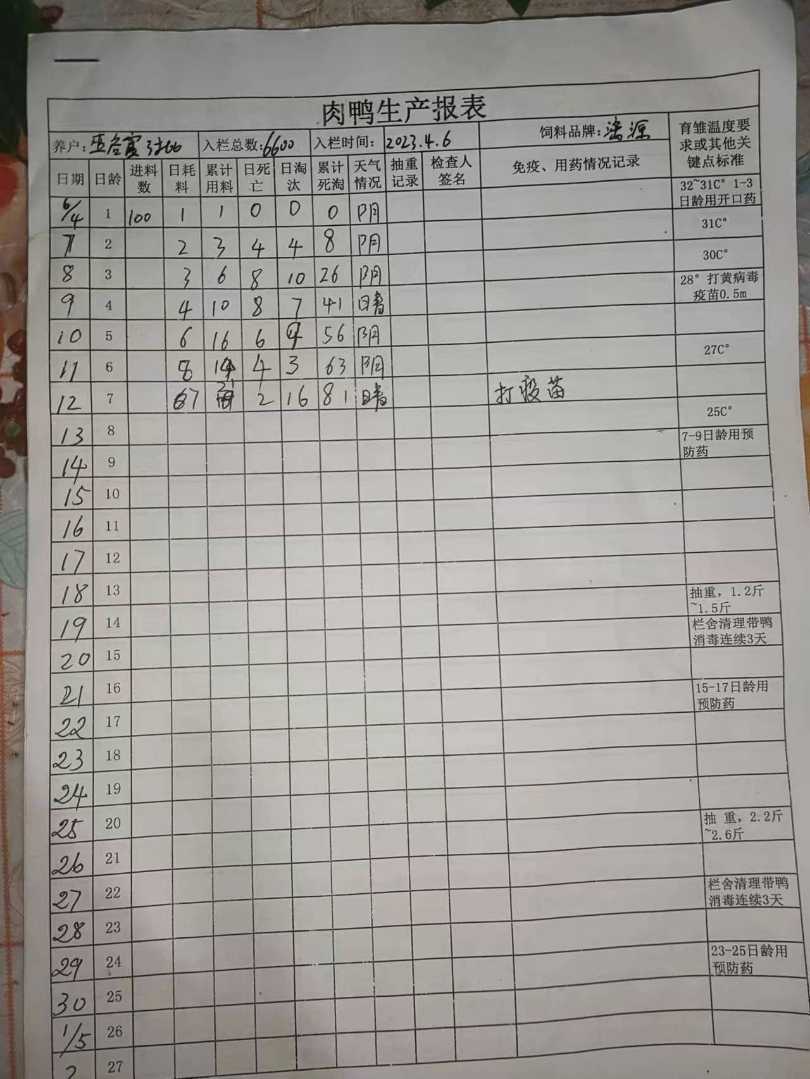 肉鸭生产报表
养户: 入栏总数:6600 入栏时间: 2023.4.6 饲料品牌: 育雏温度要求或其他关键点标准
日期 日龄 进料数 日耗料 累计用料 日死亡 日淘汰 累计死淘 天气情况 抽重记录 检查人签名 免疫、用药情况记录
32~31C° 1-3日龄用开口药
6/4 1 100 1 1 0 0 0 阴
31C°
7 2 2 3 4 4 8 阴
30C°
8 3 3 6 8 10 26 阴
28° 打黄病毒疫苗0.5m
9 4 4 10 8 7 41 晴
10 5 6 16 6 56 阴
27C°
11 6 8 4 3 63 阴
12 7 7 2 16 81 晴 打疫苗
25C°
13 8
7-9日龄用预防药
14 9
15 10
16 11
17 12
18 13
抽重，1.2斤~1.5斤
19 14
栏舍清理带鸭消毒连续3天
20 15
21 16
15-17日龄用预防药
22 17
23 18
24 19
25 20
抽 重，2.2斤~2.6斤
26 21
27 22
栏舍清理带鸭消毒连续3天
28 23
29 24
23-25日龄用预防药
30 25
1/5 26
2 27